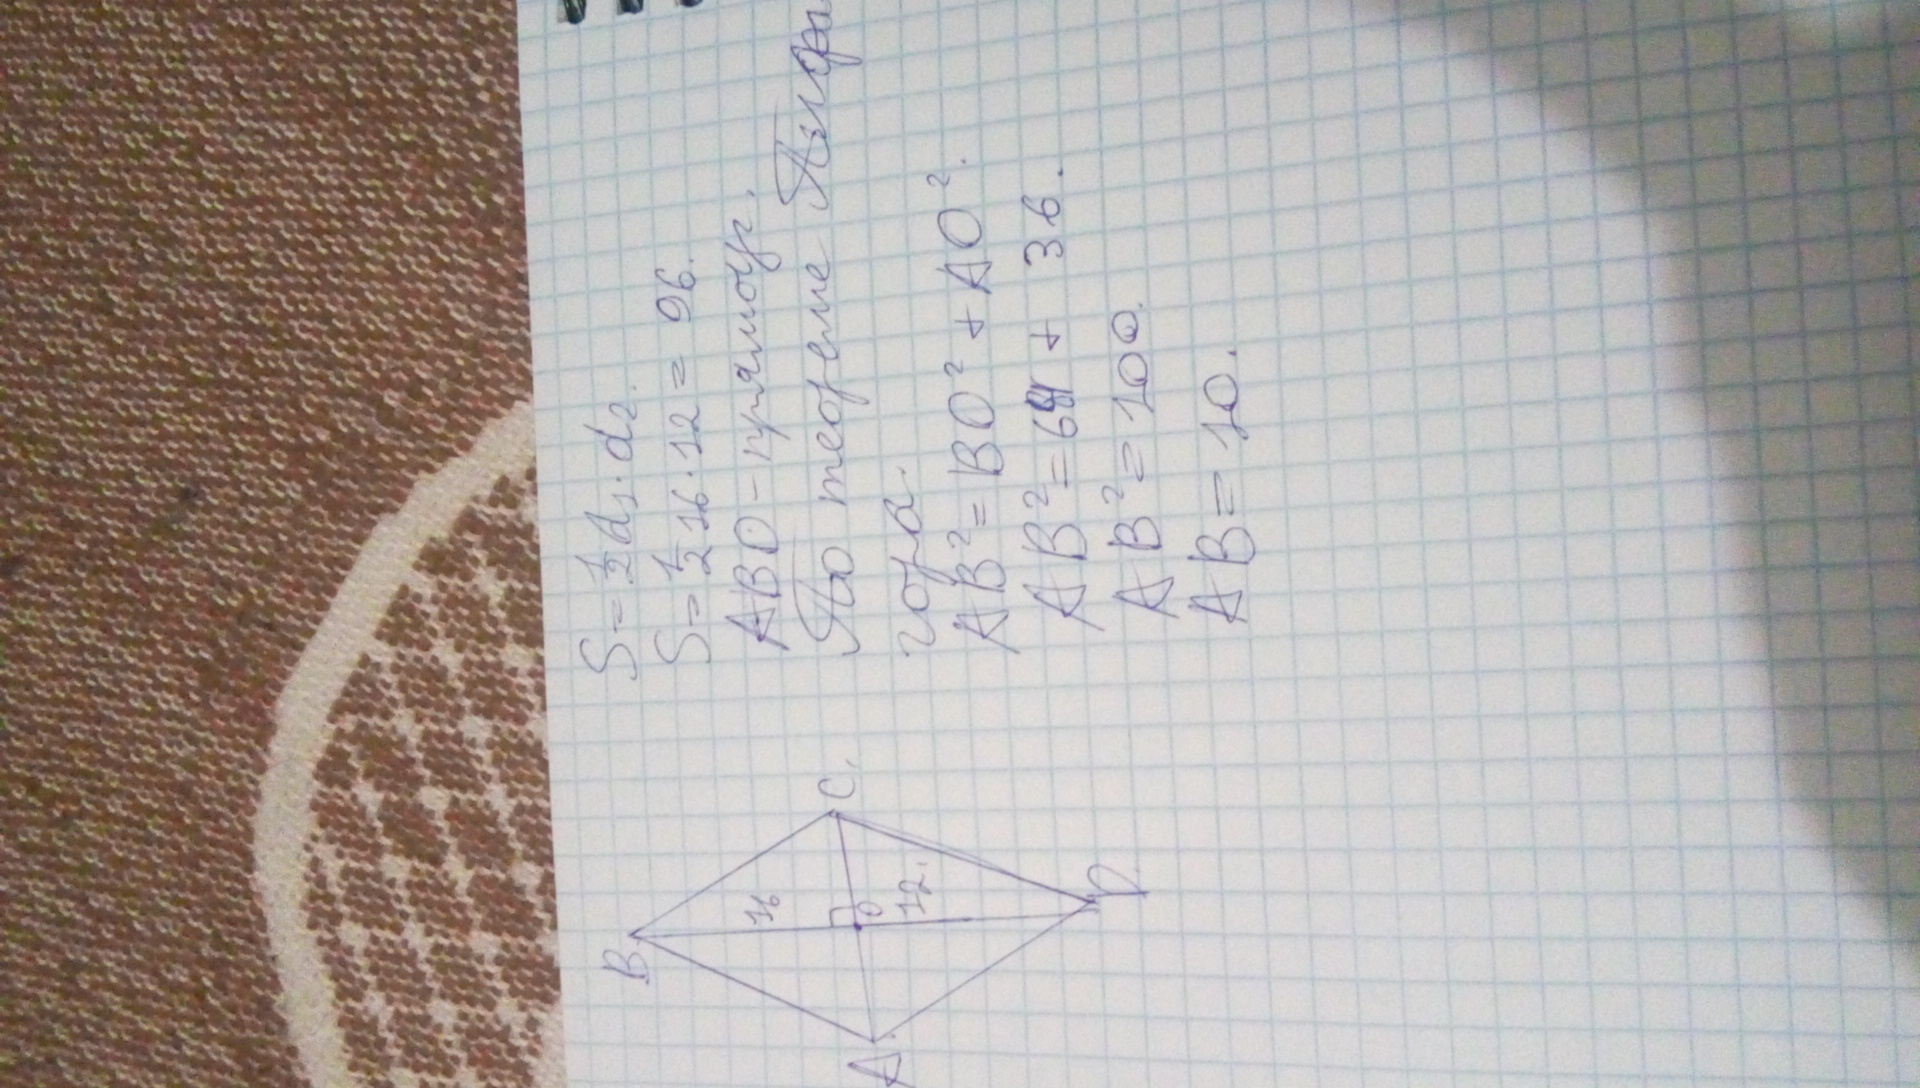 B.
16
A.
O
C.
12.
D.
S = 1/2 d1 · d2.
S = 1/2 16 · 12 = 96.
ABO - прямоуг.
По теореме Пифа
гора.
AB² = BO² + AO².
AB² = 64 + 36.
AB² = 100.
AB = 10.